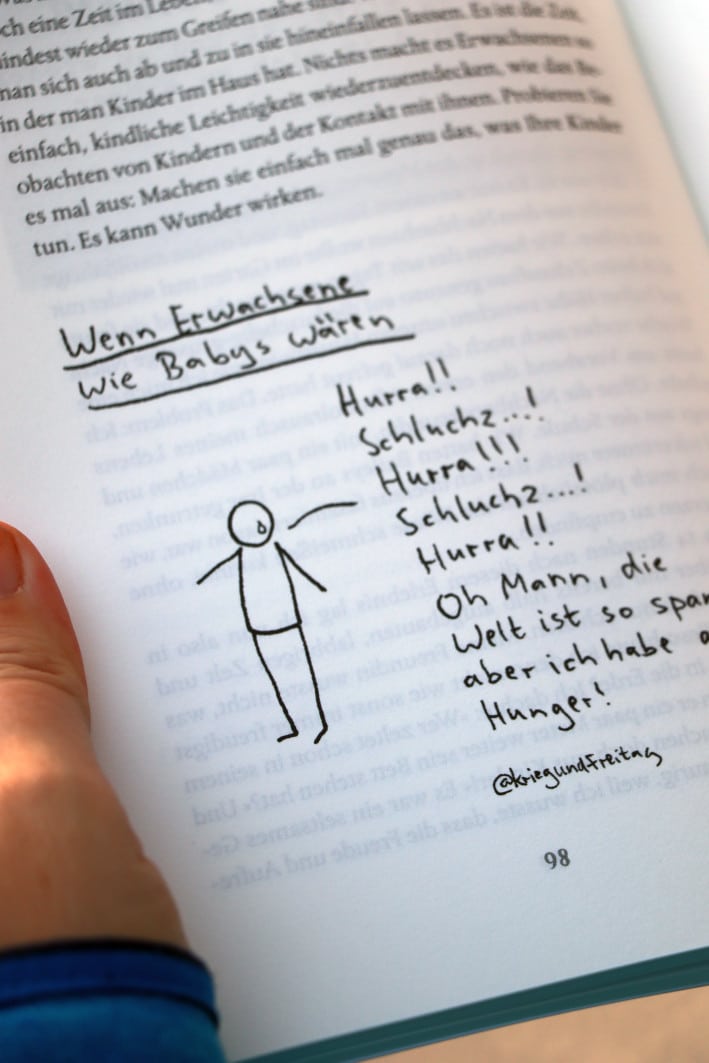 ch eine Zeit im Leben
indest wieder zum Greifen nahe
man sich auch ab und zu in sie hineinfallen lassen. Es ist die Zeit,
in der man Kinder im Haus hat. Nichts macht es Erwachsenen so
einfach, kindliche Leichtigkeit wiederzuentdecken, wie das Be-
obachten von Kindern und der Kontakt mit ihnen. Probieren Sie
es mal aus: Machen sie einfach mal genau das, was Ihre Kinder
tun. Es kann Wunder wirken.
Wenn Erwachsene
wie Babys wären
Hurra!!
Schluchz...!
Hurra!!!
Schluchz...!
Hurra!!
Oh Mann, die
Welt ist so span
aber ich habe a
Hunger!
@kriegundfreitag
98